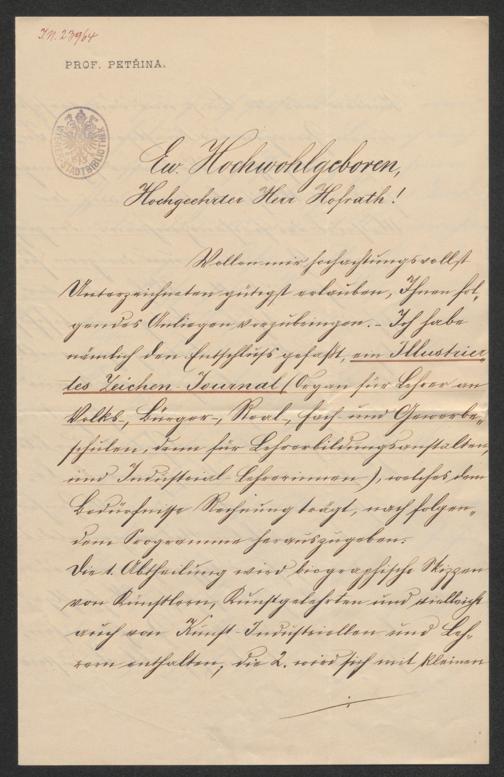 I.N. 23964
PROF. PETŘINA.
Ew. Hochwohlgeboren,
Hochgeehrter Herr Hofrath!
Wollen mir hochachtungsvollst
Unterzeichneten gütigst erlauben, Ihnen fol-
gendes Anliegen vorzubringen. – Ich habe
nämlich den Entschluß gefaßt, ein Illustrier
tes Zeichen-Journal (Organ für Lehrer an
Volks-, Bürger-, Real-, Fach- und Gewerbe-
schulen, dann für Lehrerbildungsanstalten,
und Industrial-Lehrerinnen), welches dem
Bedürfnisse Rechnung trägt, nach folgen-
dem Programme herauszugeben.
Die 1. Abtheilung wird biographische Skizzen
von Künstlern, Kunstgelehrten und vielleicht
auch von Kunst-Industriellen und Leh-
rern enthalten; die 2. wird sich mit kleinen